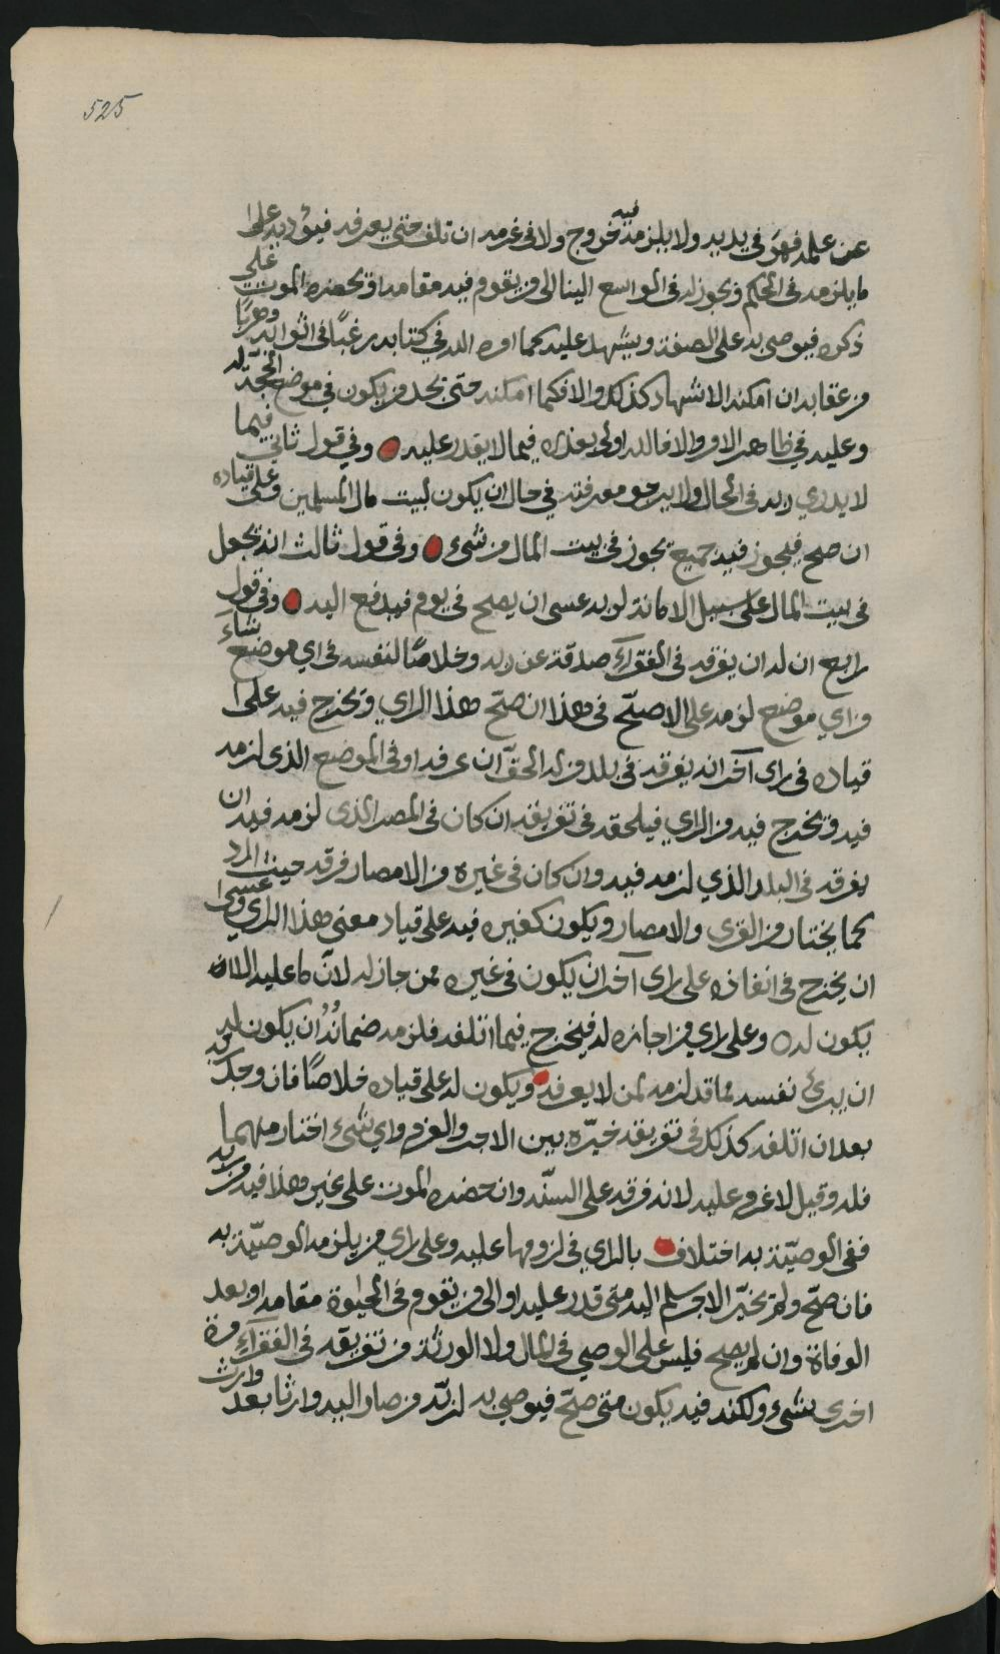 525
عن علمه فهو في يديه ولا يلزمه فيه خروج ولا في غرمه ان تلف حتى يعرفه فيؤديه على
ما يلزمه في الحكم ويجوز له في الواسع الينا الى من يقوم فيه مقامه او يحضره الموت على
ذكره فيوصي به على الصفة ويشهد عليه كما امره الله في كتابه رغبًا في ثوابه وهربًا
من عقابه ان امكنه الاشهاد كذلك والا فكما امكنه حتى يجد من يكون في موضع الحجة له
وعليه في ظاهر الامر والا فالله اولى بعذره فيما لا يقدر عليه وفي قول ثاني فيما
لا يدري ربه في الحال ولا يرجو معرفته في حال ان يكون لبيت مال المسلمين وعلى قياده
ان صح فيجوز فيه جميع يجوز في بيت المال من شيء وفي قول ثالث انه يجعل
في بيت المال على سبيل الامانة لربه عسى ان يصح في يوم فيدفع اليه وفي قول
رابع ان له ان يفرقه في الفقراء صدقة عن ربه وخلاصًا لنفسه في اي موضع شاء
من اي موضع لزمه على الاصح في هذا ان صح هذا الراي ويخرج فيه على
قياده في راي آخر انه يفرقه في بلد من له الحق ان عرفه او في الموضع الذي لزمه
فيه ويخرج فيه من الراي فيلحقه في تفريقه ان كان في المصر الذي لزمه فيه ان
يفرقه في البلد الذي لزمه فيه وان كان في غيره من الامصار فرقه حيث اراد
كما يختار من القرى والامصار ويكون كغيره فيه على قياد معنى هذا الراي وعسى
ان يخرج في انفاذه على راي آخر ان يكون في غيره ممن جاز له لان ما عليه
يكون له وعلى راي من اجازه له فيخرج فيما اتلفه فلزمه ضمانه ان يكون له
ان يبرئ نفسه مما قد لزمه لمن لا يعرفه ويكون له على قياده خلاصًا فان وجد ربه
بعد ان اتلفه كذلك في تفريقه خيره بين الاجر والغرم واي شيء اختار منهما
فله وقيل لا غرم عليه لانه فرقه على السنة وان حضره الموت على غير وهذا فيه من ربه
ففي الوصية به اختلاف بالراي في لزومها عليه وعلى راي من يلزمه الوصية به
فان صح ولم تخير الاجر سلم اليه متى قدر عليه او الى من يقوم في الحيوة مقامه او بعد
الوفاة وان لم يصح فليس على الوصي في المال ولا الورثة من تفريقه في الفقراء مرة
اخرى شيء ولكنه فيه يكون متى صح فيوصي به لربه من صار اليه وارثا بعد وارث